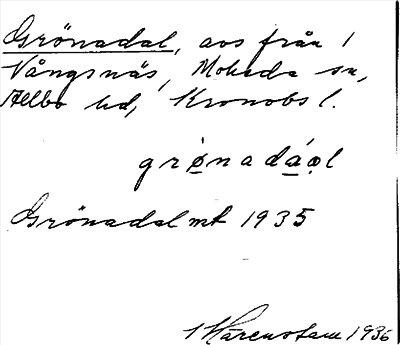 Grönadal, avs från 1
Vångsnäs, Moheda sn,
Allbo hd, Kronobs l.
grö̀nadáₐl
Grönadal mt 1935
1936